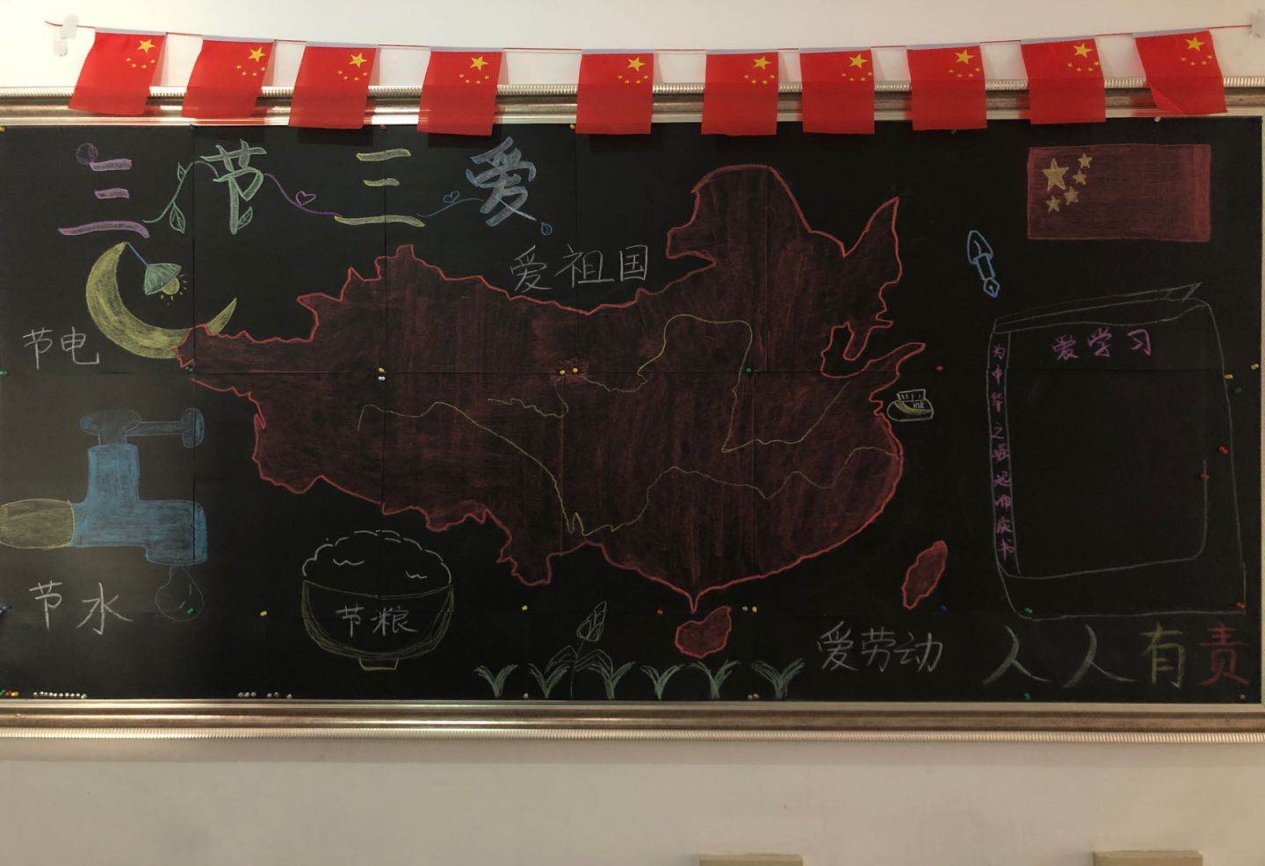 三节三爱
爱祖国
节电
爱学习
为中华之崛起而读书
节水
节粮
爱劳动
人人有责